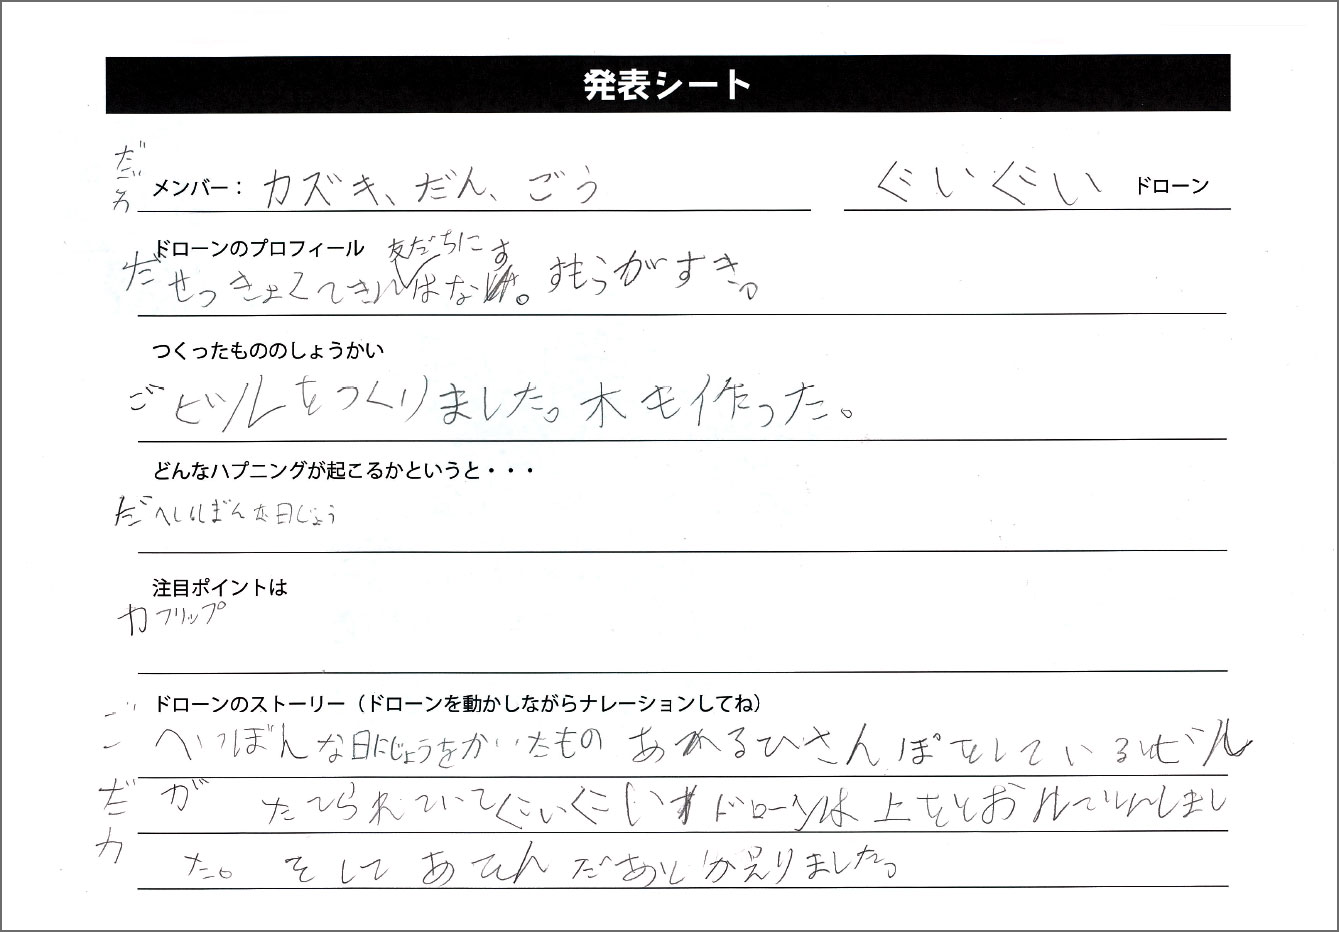 発表シート
だ
ご
カ
メンバー： カズキ、だん、ごう
ぐいぐい ドローン
ドローンのプロフィール 友だちにす
だ せっきょくてきはな。すもうがすき。
つくったもののしょうかい
ご ビルをつくりました。木も作った。
どんなハプニングが起こるかというと・・・
だ へいぼんな日じょう
注目ポイントは
カ フリップ
ドローンのストーリー（ドローンを動かしながらナレーションしてね）
ご へいぼんな日にじょうをかいたもの あるひさんぽをしているとビル
だ が たてられていてぐいぐいドローンは上をとおりました
カ た。そして かえりました。